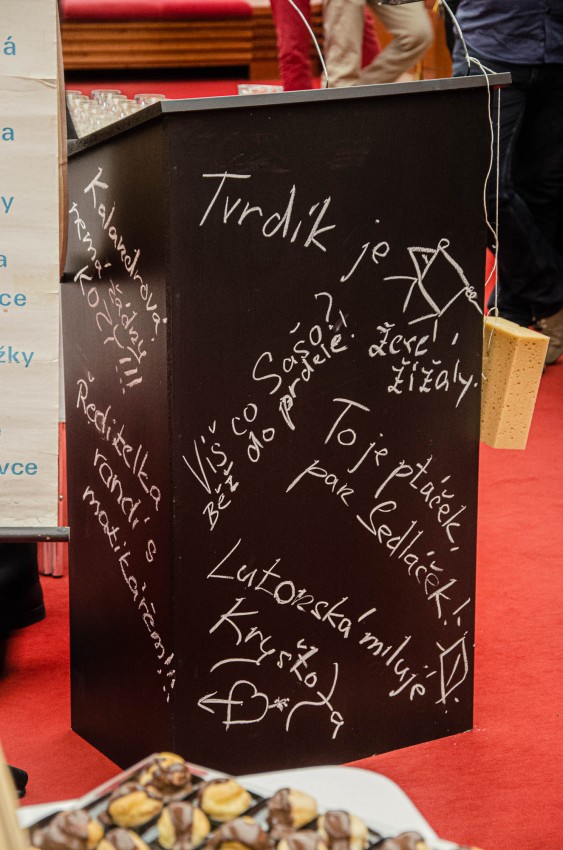 á
a
y
a
ce
žky
vce
Kalandrová
nemá žádný
KOCV!!!
Ředitelka
randí s
matikářem!!!
Tvrdík je
žere
žížaly.
Víš co Sašo?
Běž do prdele!
To je ptáček,
pan Sedláček!!
Lutonská miluje
Kryštofa